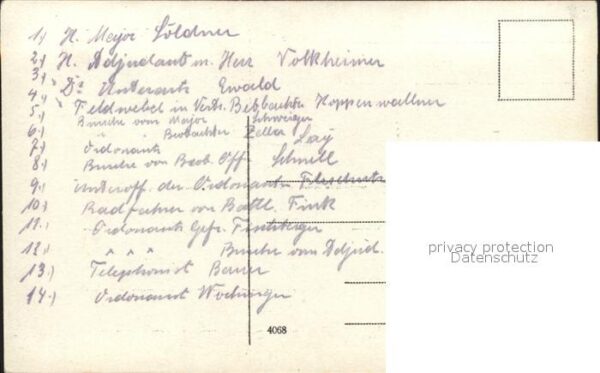 1.) H. Major Söldner
2.) H. Adjudant m. Herr Volkheimer
3.) Dr Unterarzt Ewald
4.) Feldwebel in Vertr. Beobachter Hoppenwallner
5.) Bursche vom Major Schweiger
6.) " " Beobachter Zeller
7.) Ordonanz Lay
8.) Bursche von Beob. Off. Schnell
9.) Unteroff. der Ordonanzen
10.) Radfahrer von Battl. Fink
11.) Ordonanz Gefr.
12.) " " " Bursche vom Adjud.
13.) Telephonist Bauer
14.) Ordonanz
4068
privacy protection
Datenschutz